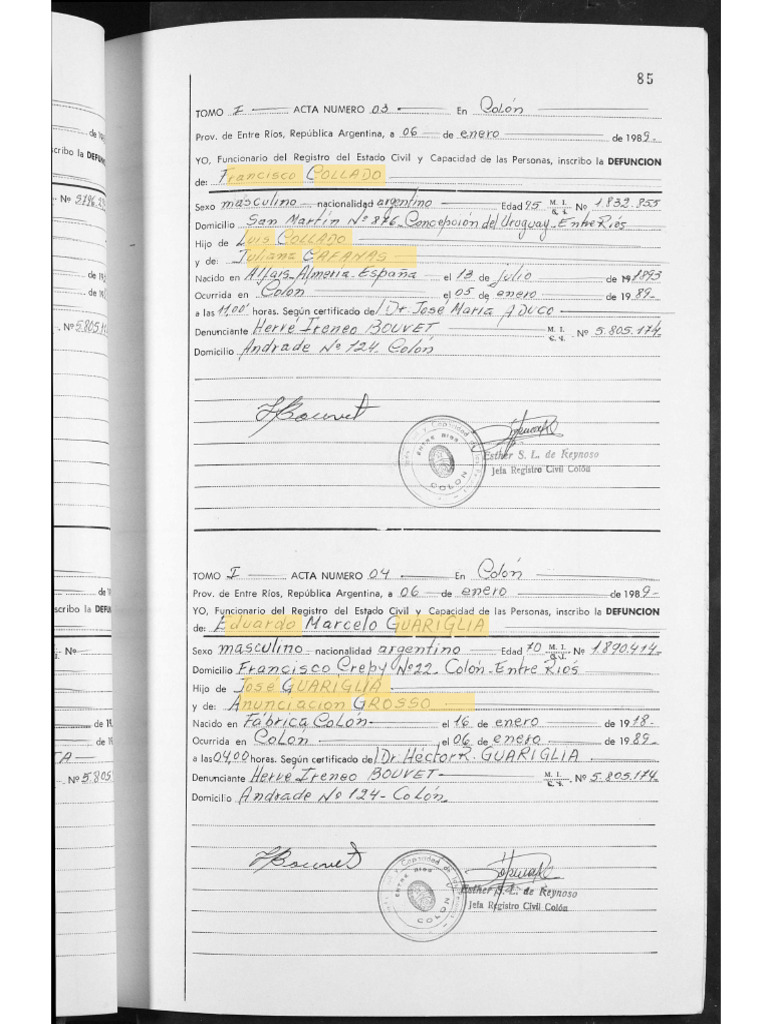 85
de 19
scribo la DEFUN
Nº 5796.2
de 19
Nº 5.805.1
TOMO I ACTA NUMERO 03 En Colón
Prov. de Entre Ríos, República Argentina, a 06 de enero de 1989.-
YO, Funcionario del Registro del Estado Civil y Capacidad de las Personas, inscribo la DEFUNCION
de: Francisco COLLADO
Sexo masculino nacionalidad argentino Edad 95 M. I. Nº 1.832.855
Domicilio San Martín Nº 876 Concepción del Uruguay Entre Ríos
Hijo de Luis COLLADO
y de: Juliana CAFANAS
Nacido en Alfais Almería España el 13 de julio de 1893
Ocurrida en Colón el 05 de enero de 1989-
a las 11,00 horas. Según certificado de Dr. José María ADUCO
Denunciante Hervé Ireneo BOUVET M. I. Nº 5.805.174
Domicilio Andrade Nº 124 Colón
HBouvet
ENTRE RIOS
COLON
Esther S. L. de Reynoso
Jefa Registro Civil Colón
TOMO I ACTA NUMERO 04 En Colón
Prov. de Entre Ríos, República Argentina, a 06 de enero de 1989-
YO, Funcionario del Registro del Estado Civil y Capacidad de las Personas, inscribo la DEFUNCION
de: Eduardo Marcelo GUARIGLIA
Sexo masculino nacionalidad argentino Edad 70 M. I. Nº 1.890.414
Domicilio Francisco Crepy Nº 22 Colón Entre Ríos
Hijo de José GUARIGLIA
y de: Anunciacion GROSSO
Nacido en Fábrica Colón el 16 de enero de 1918-
Ocurrida en Colón el 06 de enero de 1989-
a las 04,00 horas. Según certificado de Dr. Héctor R. GUARIGLIA
Denunciante Hervé Ireneo BOUVET M. I. Nº 5.805.174
Domicilio Andrade Nº 124- Colón
HBouvet
ENTRE RIOS
COLON
Esther S. L. de Reynoso
Jefa Registro Civil Colón